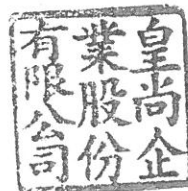 皇尚企
業股份
有限公司